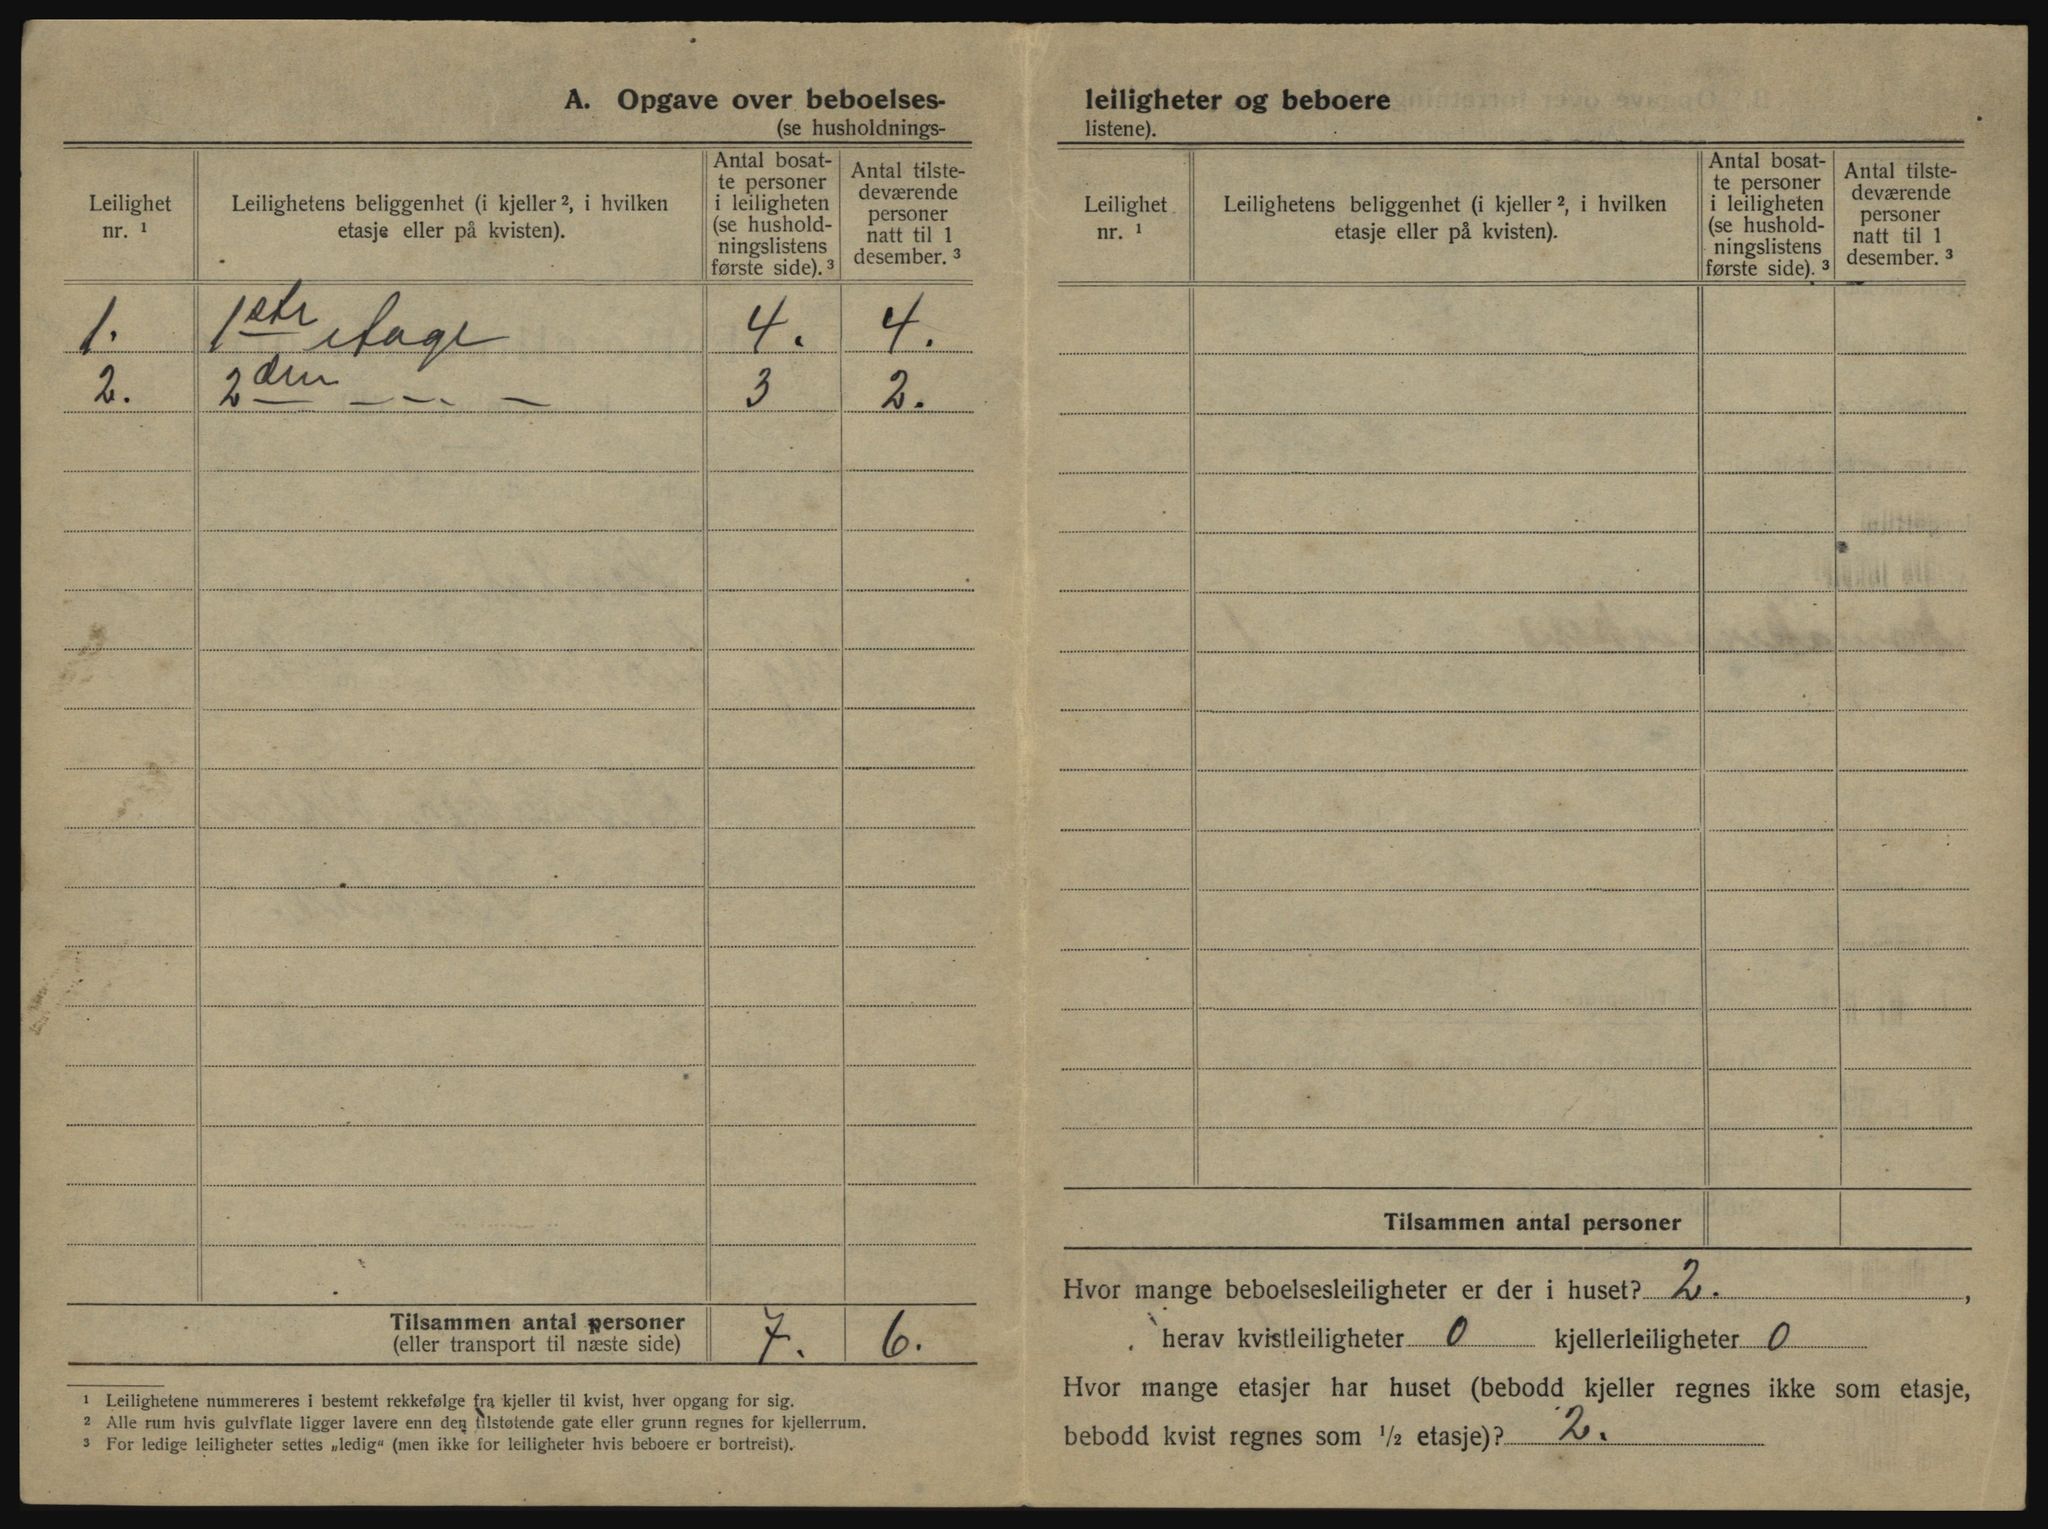 A. Opgave over beboelses-
(se husholdnings-
Leilighet nr. ¹
Leilighetens beliggenhet (i kjeller ², i hvilken etasje eller på kvisten).
Antal bosat-
te personer
i leiligheten
(se hushold-
ningslistens
første side). ³
Antal tilste-
deværende
personer
natt til 1
desember. ³
1. 1ste etage 4. 4.
2. 2den — — — — 3 2.
Tilsammen antal personer
(eller transport til næste side) 7. 6.
¹ Leilighetene nummereres i bestemt rekkefølge fra kjeller til kvist, hver opgang for sig.
² Alle rum hvis gulvflate ligger lavere enn den tilstøtende gate eller grunn regnes for kjellerrum.
³ For ledige leiligheter settes „ledig“ (men ikke for leiligheter hvis beboere er bortreist).
leiligheter og beboere
listene).
Leilighet nr. ¹
Leilighetens beliggenhet (i kjeller ², i hvilken etasje eller på kvisten).
Antal bosat-
te personer
i leiligheten
(se hushold-
ningslistens
første side). ³
Antal tilste-
deværende
personer
natt til 1
desember. ³
Tilsammen antal personer
Hvor mange beboelsesleiligheter er der i huset? 2.,
herav kvistleiligheter 0 kjellerleiligheter 0
Hvor mange etasjer har huset (bebodd kjeller regnes ikke som etasje,
bebodd kvist regnes som ½ etasje)? 2.